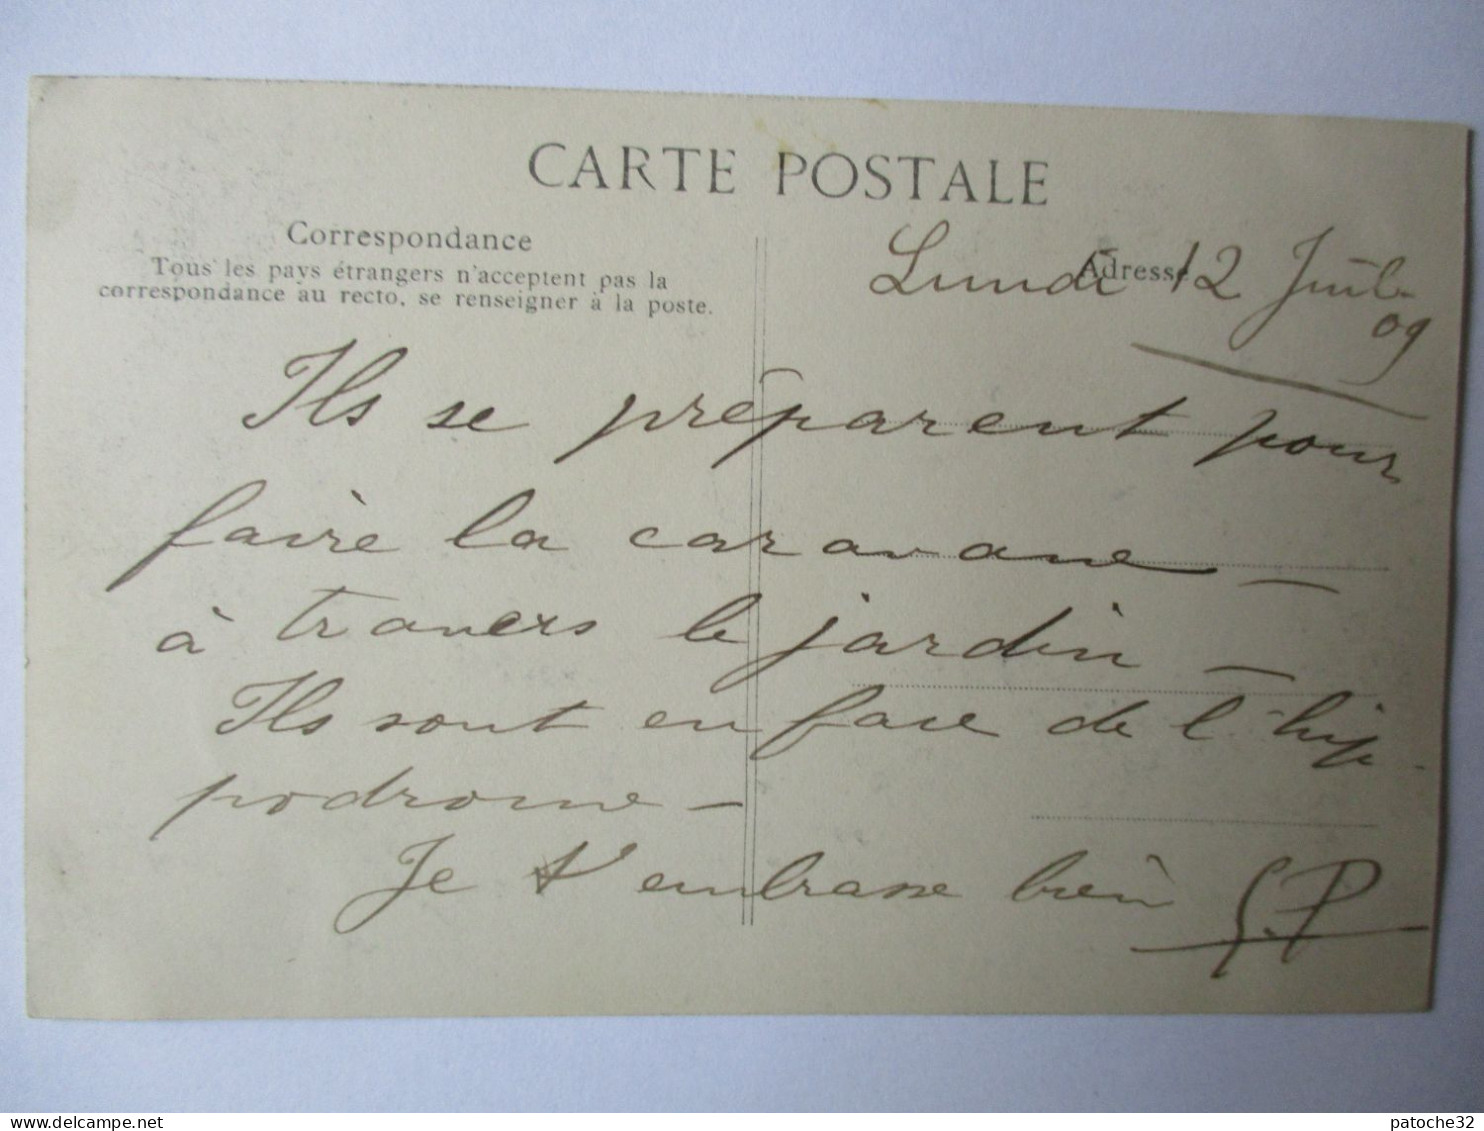 CARTE POSTALE
Correspondance
Tous les pays étrangers n'acceptent pas la
correspondance au recto, se renseigner à la poste.
Adresse
Lundi 12 Juil.
09
Ils se préparent pour
faire la caravane —
à travers le jardin —
Ils sont en face de l'hip-
podrome —
Je t'embrasse bien G.P
patoche32